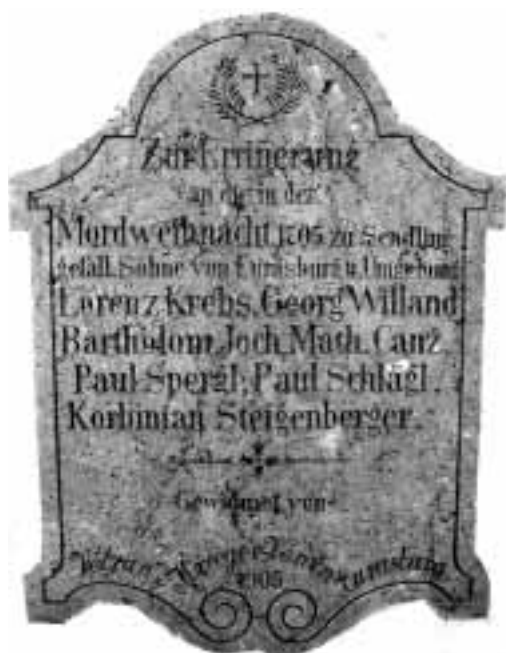 Zur Erinnerung
an die in der
Mordweihnacht 1705 zu Sendling
gefall. Söhne von Eurasburg u. Umgebung
Lorenz Krebs, Georg Willand
Bartholom. Joch, Math. Canz,
Paul Spergl, Paul Schlagl,
Korbinian Steigenberger.
Gewidmet von
1905